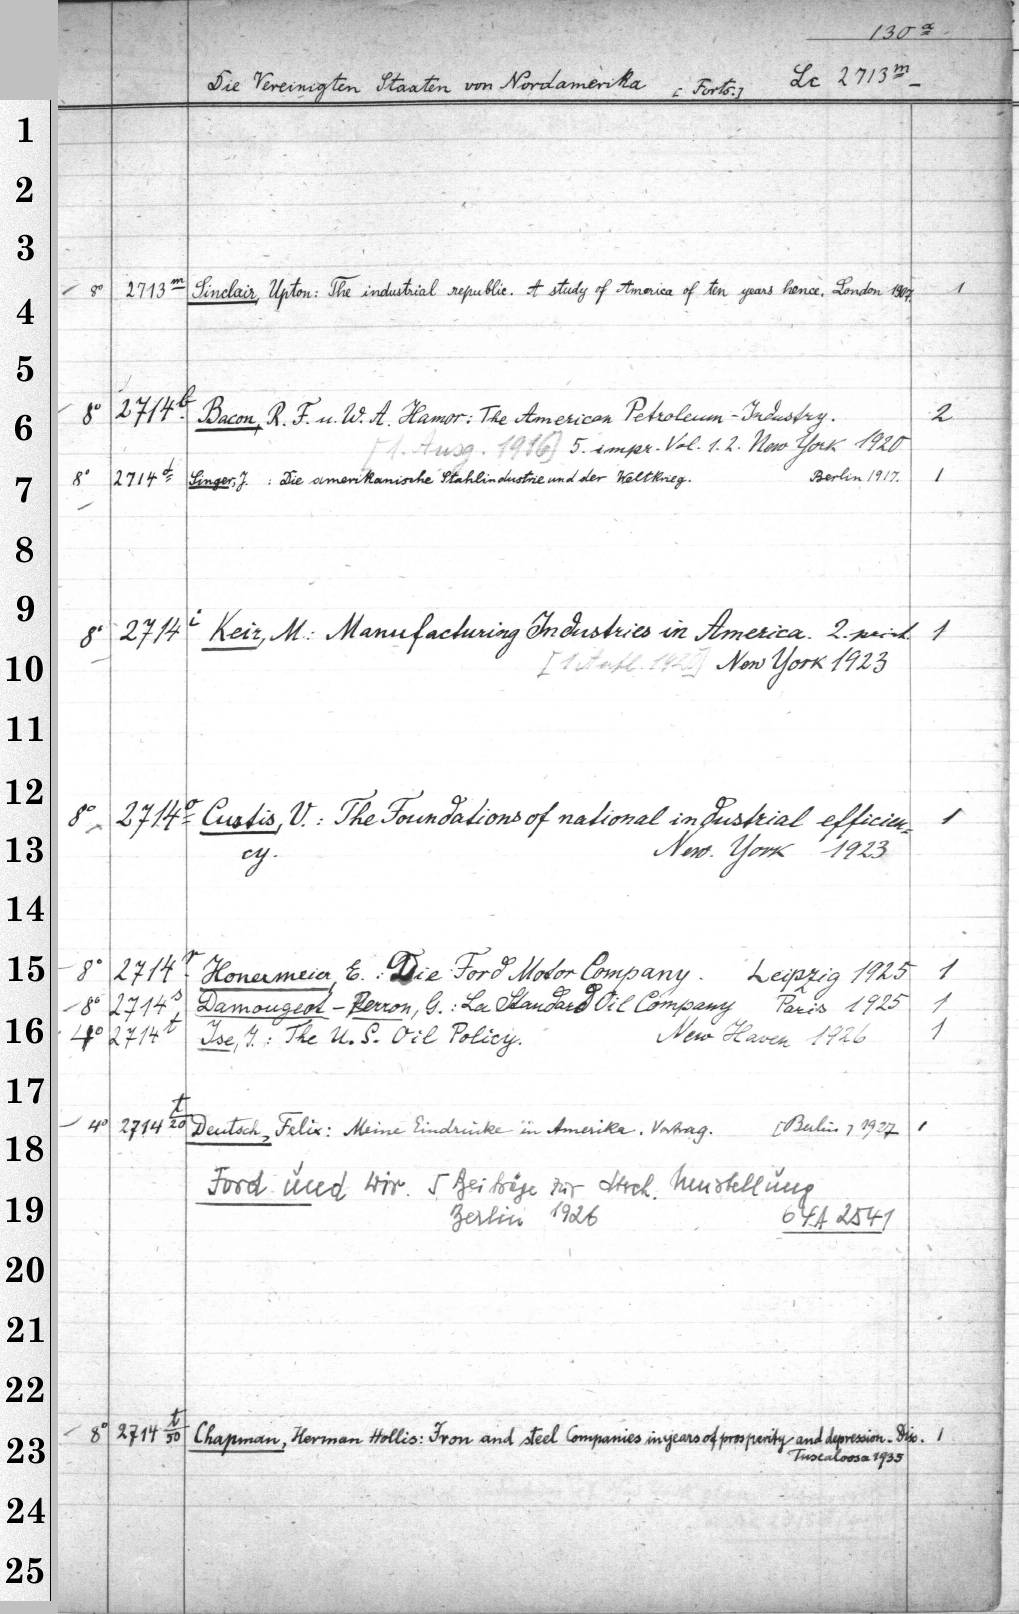 130 a
Die Vereinigten Staaten von Nordamerika [Forts.] Lc 2713 m
1
2
3
8° 2713 m Sinclair, Upton: The industrial republic. A study of America of ten years hence. London 1907. 1
4
5
8° 2714 b Bacon, R. F. u. W. A. Hamor: The American Petroleum-Industry. 2
6
[1. Ausg. 1916] 5. impr. Vol. 1. 2. New York 1920
8° 2714 d Singer, J. : Die amerikanische Stahlindustrie und der Weltkrieg. Berlin 1917. 1
7
8
9
8° 2714 i Keir, M.: Manufacturing Industries in America. 2. print 1
10
[1 Aufl. 1920] New York 1923
11
12
8° 2714 o Curtis, V.: The Foundations of national industrial efficien=
1
13
cy. New York 1923
14
15
8° 2714 r Honermeier, E.: Die Ford Motor Company. Leipzig 1925 1
8° 2714 s Damougeot-Perron, G.: La Standard Oil Company Paris 1925 1
16
4° 2714 t Ise, J.: The U. S. Oil Policy. New Haven 1926 1
17
4° 2714 t/20 Deutsch, Felix: Meine Eindrücke in Amerika. Vortrag. [Berlin] 1927 1
18
Ford und Wir. 5 Beiträge zur Umstellung
19
Berlin 1926 64A 2541
20
21
22
8° 2714 t/50 Chapman, Herman Hollis: Iron and steel Companies in years of prosperity and depression. Diss. 1
23
Tuscaloosa 1935
24
25